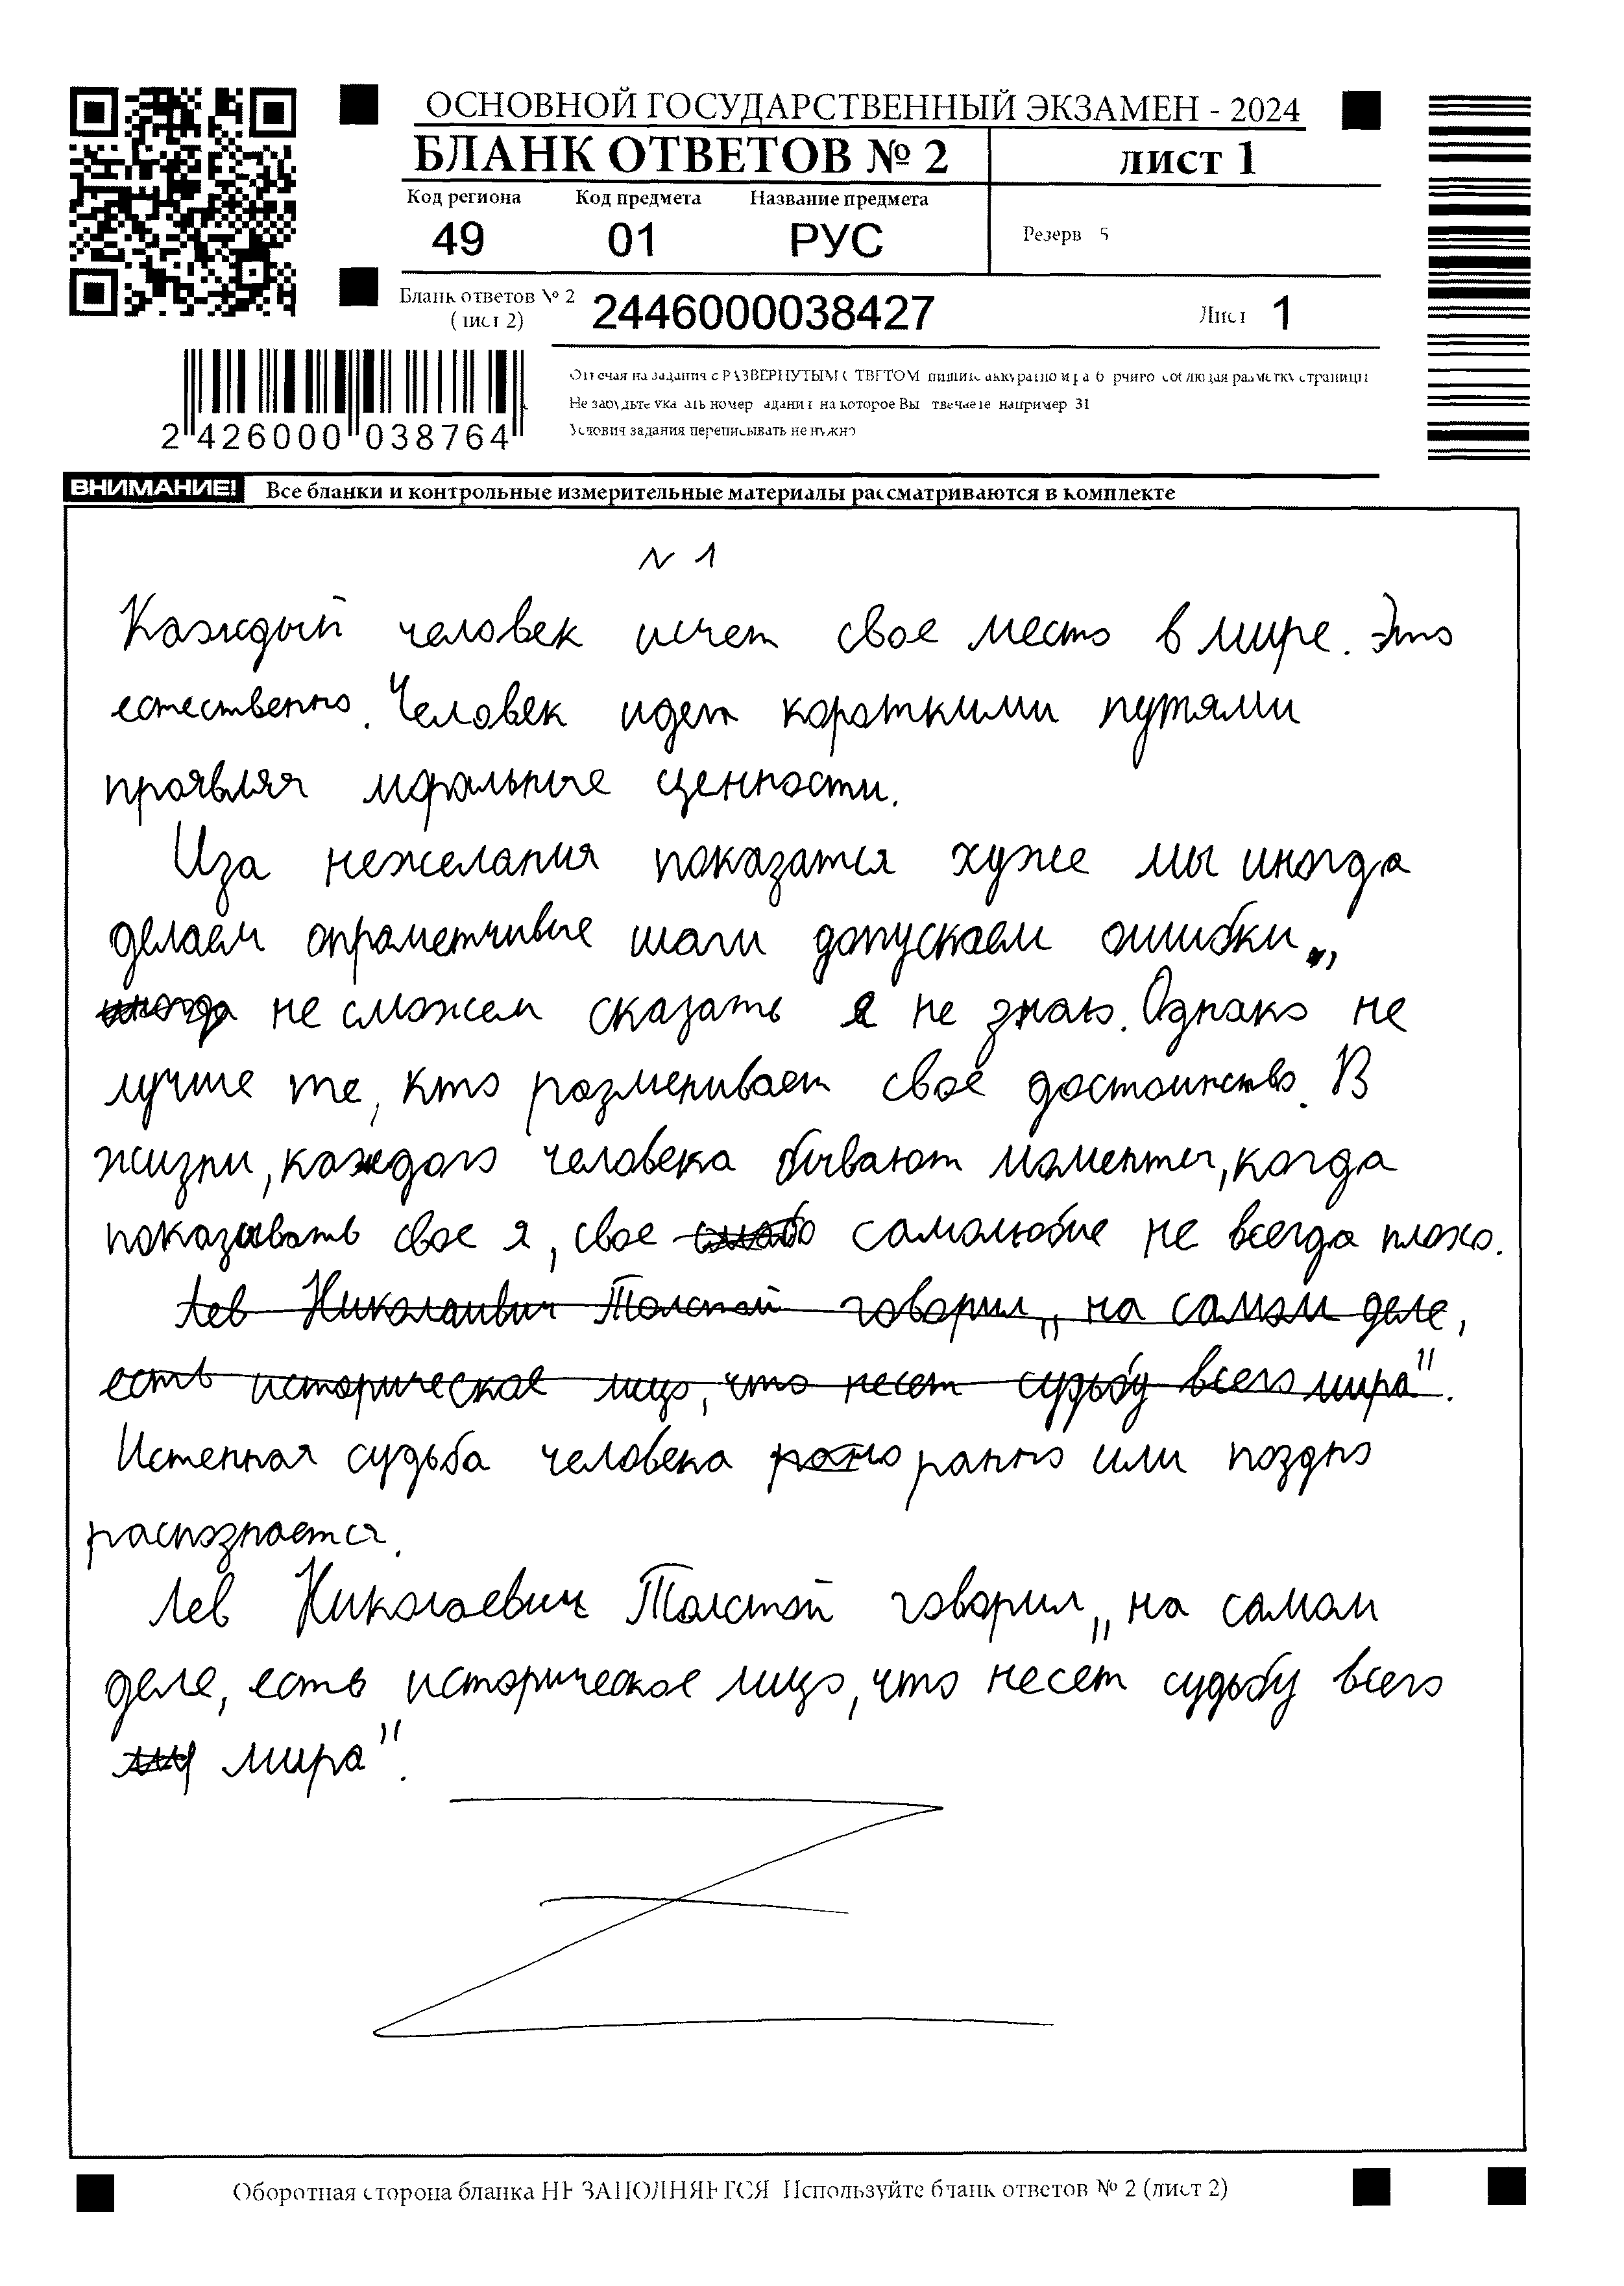 ОСНОВНОЙ ГОСУДАРСТВЕННЫЙ ЭКЗАМЕН - 2024
БЛАНК ОТВЕТОВ № 2
лист 1
Код региона Код предмета Название предмета
49 01 РУС
Резерв 5
Бланк ответов № 2
(лист 2)
2446000038427
Лист 1
Отвечая на задания с РАЗВЕРНУТЫМ ОТВЕТОМ пишите аккуратно и разборчиво соблюдая разметку страницы
Не забудьте указать номер задания на которое Вы отвечаете например 31
Условия задания переписывать не нужно
2 426000 038764
ВНИМАНИЕ! Все бланки и контрольные измерительные материалы рассматриваются в комплекте
N 1
Каждый человек исчет свое место в мире. Это
естественно. Человек идет короткими путями
проявляя моральные ценности.
Иза нежелания показатся хуже мы иногда
делаем опраметчивые шаги допускаем ошибки,
иногда не сможем сказать я не знаю. Однако не
лучше те, кто разменивает своё достоинство. В
жизни, каждого человека бывают моменты, когда
показывать свое я, свое самолюбие не всегда плохо.
Лев Николаивич Толстой говорил „ на самом деле,
есть историческое лицо, что несет судьбу всего мира".
Истенная судьба человека рано ранно или поздно
распознается.
Лев Николаевич Толстой говорил „ на самом
деле, есть историческое лицо, что несет судьбу всего
мира".
Оборотная сторона бланка НЕ ЗАПОЛНЯЕТСЯ Используйте бланк ответов № 2 (лист 2)